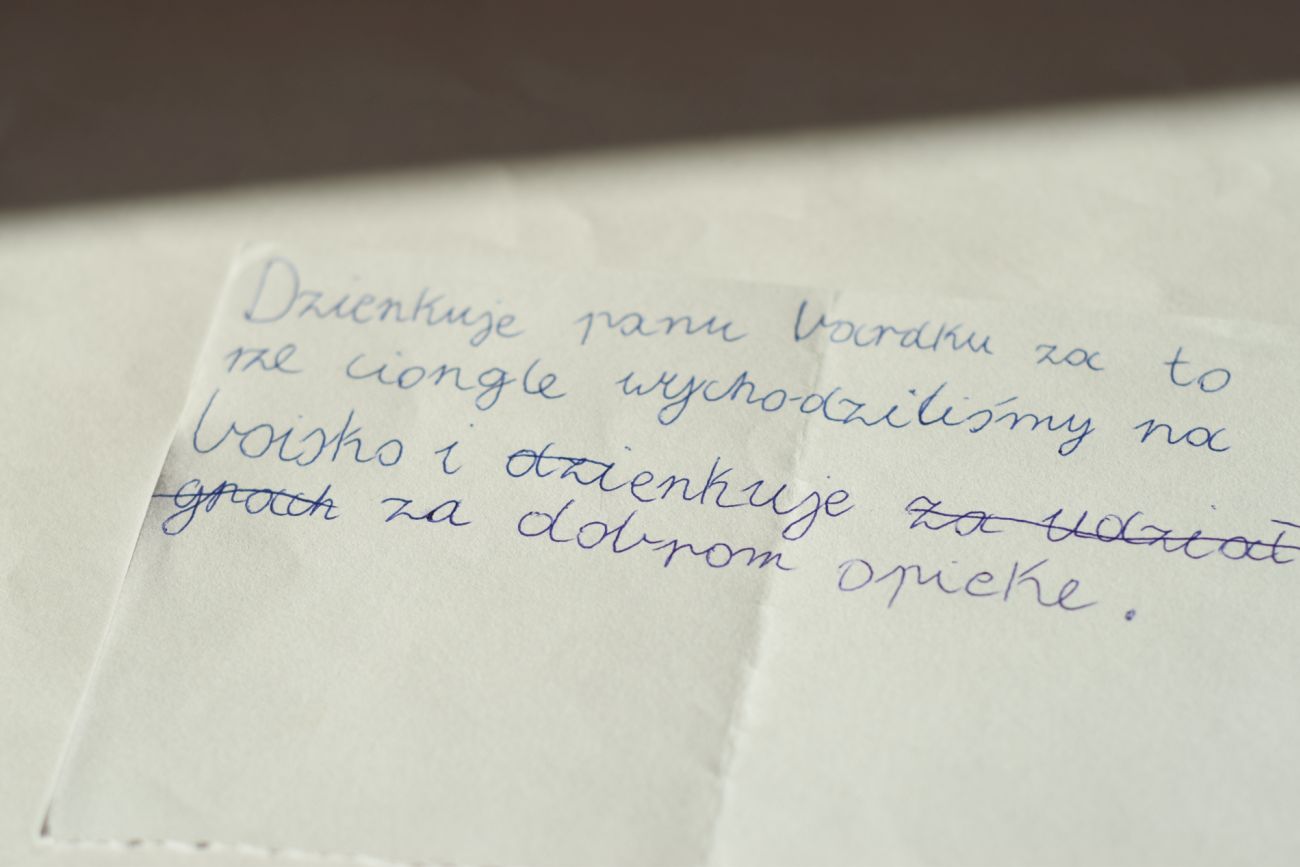 Dzienkuje panu bardku za to
rze ciongle wychodziliśmy na
boisko i dzienkuje za udział
grach za dobrom opieke.